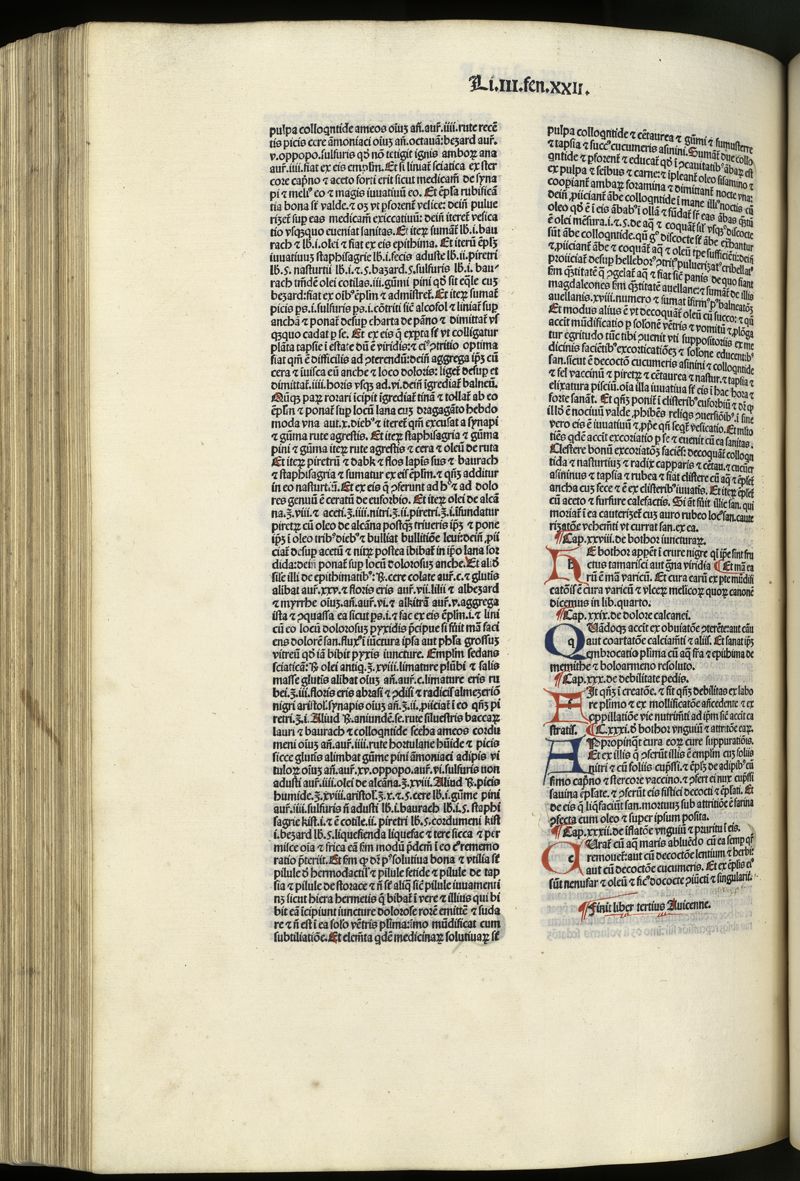 Li.III.fen.XXII.
pulpa colloqntide ameos oiuȝ añ. aur̄. iiii. rute recē
tis picis cere āmoniaci oiuȝ añ. octauā: beȝard aur̄.
v. oppopo. sulfuris qđ nō tetigit ignis amboꝝ ana
aur̄. iiii. fiat ex eis emplm̄. Et si liniat̄ sciatica ex ster
core cap̄no ⁊ aceto forti erit sicut medicam̄ de syna
pi ⁊ melꝰ eo ⁊ magis iuuatiuū eo. Et ēpl̄a rubificā
tia bona st̄ valde. ⁊ oȝ vt ꝓsorent̄ vesice: dein̄ pulue
riȝet̄ sup eas medicam̄ exiccatiuū: dein̄ iteret̄ vesica
tio vsqȝquo eueniat sanitas. Et iteꝝ sumat̄ lb. i. bau
rach ⁊ lb. i. olei ⁊ fiat ex eis epithima. Et iterū ēpl̄ȝ
iuuatiuuȝ staphisagrie lb. i. fecis aduste lb. ii. piretri
lb. 5. nasturtii lb. i. ⁊. 5. baȝard. 5. sulfuris lb. i. bau-
rach tm̄dē olei cotilas. iii. gūmi pini qđ sit eq̄le cuȝ
beȝard: fiat ex oibꝰ ēplm̄ ⁊ admistret̄. Et iteꝝ sumat̄
picis ps. i. sulfuris ps. i. cōtriti sic̄ alcosol ⁊ liniat̄ sup
anchā ⁊ ponat̄ desup charta de pāno ⁊ dimittat̄ vs
qȝquo cadat p se. Et ex eis q̄ exp̄ta st̄ vt colligatur
plāta tapsie ī estate dū ē viridis: ⁊ eiꝰ ꝯtritio optima
fiat qm̄ ē difficilis ad ꝯterendū: dein̄ aggrega ip̄ȝ cū
cera ⁊ iuisca eū anche ⁊ loco doloris: liget̄ desup et
dimittat̄. iiii. horis vsqȝ ad. vi. dein̄ īgrediat̄ balneū.
Nūqȝ paꝝ rorari īcipit īgrediat̄ tinā ⁊ tollat̄ ab eo
ēplm̄ ⁊ ponat̄ sup locū lana cuȝ dragagāto hebdo
moda vna aut. x. diebꝰ ⁊ iteret̄ qm̄ excusat a synapi
⁊ gūma rute agrestis. Et iteꝝ staphisagria ⁊ gūma
pini ⁊ gūma iteꝝ rute agrestis ⁊ cera ⁊ oleū de ruta
Et iteꝝ piretrū ⁊ dabk ⁊ flos lapis sus ⁊ baurach
⁊ staphisagria ⁊ sumatur ex eis ēplm̄. ⁊ qn̄ȝ additur
in eo nasturt. Et ex eis q̄ ꝯferunt ad hꝰ ⁊ ad dolo
res genuū ē ceratū de euforbio. Et iteꝝ olei de alcā
na. ȝ. viii. ⁊ aceti. ȝ. iiii. nitri. ȝ. ii. piretri. ȝ. i. īfundatur
piretꝝ cū oleo de alcāna postqȝ triueris ip̄ȝ ⁊ pone
ip̄ȝ ī oleo tribꝰ diebꝰ ⁊ bulliat bullitiōe leui: dein̄ ꝓii
ciat̄ desup acetū ⁊ nitꝝ postea ībibat̄ in ip̄o lana sor
dida: dein̄ ponat̄ sup locū dolorosuȝ anche.
alibat aur̄. xxv. ⁊ floris eris aur̄. vii. lilii ⁊ albeȝard
⁊ myrrhe oiuȝ. añ. aur̄. vi. ⁊ alkitrā aur̄. v. aggrega
ista ⁊ ꝯquassa ea sicut ps. i. ⁊ fac ex eis ēplm̄. i. ⁊ lini
cū eo locū dolorosuȝ pyxidis p̄cipue si sūit mā faci
ens dolorē san. fluxꝰ ī iūctura ipsa aut phl̄a grossuȝ
vitreū qđ iā bibit pyxis iuncture. Emplm̄ sedans
sciaticā: ℞ olei antiq̄. ȝ. xviii. limature plūbi ⁊ salis
masse glutis alibat oiuȝ añ. aur̄. c. limature eris ru
bei. ȝ. iii. floris eris abrasi ⁊ ꝯdisi ⁊ radicis almeȝeriō
nigri aristol. synapis oiuȝ añ. ȝ. ii. ꝓiiciat̄ ī eo qn̄ȝ pi
retri. ȝ. i. Aliud ℞. aniundē. se. rute siluestris baccaꝝ
lauri ⁊ baurach ⁊ colloqntide seeha ameos cordu
meni oiuȝ añ. aur̄. iiii. rute hortulane hūide ⁊ picis
sicce glutis alimbat gūme pini āmoniaci adipis vi
tuloꝝ oiuȝ añ. aur̄. xv. oppopo. aur̄. vi. sulfuris non
adusti aur̄. iiii. olei de alcāna. ȝ. xviii. Aliud ℞. picis
humide. ȝ. xviii. aristol. ȝ. x. ⁊. 5. cere lb. i. gūme pini
aur̄. iiii. sulfuris ñ adusti lb. i. baurach lb. i. 5. staphi
sagrie kist. i. ⁊ ē cotile. ii. piretri lb. 5. cordumeni kist
i. beȝard lb. 5. liquefienda liquefac ⁊ tere sicca ⁊ per
misce oia ⁊ frica eā sm̄ modū p̄dem̄ ī eo cꝰ rememo
ratio p̄teriit. Et sm̄ q̄ dꝝ pꝰ solutiua bona ⁊ vtilia st̄
pilule đ hermodactilꝰ ⁊ pilule fetide ⁊ pilule de tap
sia ⁊ pilule de storace ⁊ ñ sē aliq̄ sic̄ pilule iuuamenti
nȝ sicut hiera hermetis q̄ bibat̄ ī vere ⁊ illius qui bi
bit eā īcipiunt iuncture dolorose rorē emittē ⁊ suda
re ⁊ ñ est ī ea soło vētris plīma: īmo mūdificat cum
subtiliatiōe. Et elem̄ta qdē medicinaꝝ solutiuaꝝ sē
pulpa colloqntide ⁊ cētaurea ⁊ gūmi ⁊ fumusterre
⁊ tapsia ⁊ succꝰ cucumeris asinini. Sumāt̄ due collo
qntide ⁊ ꝓforent̄ ⁊ educat̄ qđ ī ꝯcauitatibꝰ ābaꝝ est
ex pulpa ⁊ seibus ⁊ carne: ⁊ īpleant̄ oleo sisamino ⁊
coopiant̄ ambaꝝ foramina ⁊ dimittant̄ nocte vna:
dein̄ ꝓiiciant̄ ābe colloqntide ī mane illiꝰ noctis cū
oleo qđ ē ī eis ābabꝰ ī ollā ⁊ fūdat̄ sr̄ eas ābas qȝtū
ē olei mēsura. i. ⁊. 5. de aq̄ ⁊ coquāt̄ sīl vsqȝꝰ discocte
sūt ābe colloqntide. qn̄ gꝰ discocte st̄ ābe extrahantur
⁊ ꝓiiciant̄ ābe ⁊ coquat̄ aq̄ ⁊ oleū tꝑe sufficiēti: dein̄
proiiciat̄ desup helleborꝰ ꝯtritꝰ pulueriȝatꝰ cribellatꝰ
sm̄ qȝtitatē q̄ ꝯgelat̄ aq̄ ⁊ fiat sic̄ panis de quo fiant
magdaleones sm̄ qȝtitatē auellane: ⁊ sumat̄ de illis
auellanis. xviii. numero ⁊ sumat īfirmꝰ pꝰ balneatōȝ
Et modus alius ē vt decoquāt̄ oleū cū succo: ⁊ qn̄
accit mūdificatio p solonē vētris ⁊ vomitū ⁊ ꝓlōga
tur egritudo tūc tibi ꝯuenit vti suppositoriis ex me
dicinis faciētibꝰ excorticatiōeȝ ⁊ solone educentibꝰ
san. sicut ē decoctō cucumeris asinini ⁊ colloqntide
⁊ fel vaccinū ⁊ piretꝝ ⁊ cētaurea ⁊ nastur. ⁊ tapsia ⁊
elixatura pisciū. oīa illa iuuatiua sē eis ī hac hora ⁊
forte sanāt. Et qn̄ȝ ponit̄ ī clisteribꝰ euforbiū ⁊ dꝝ qꝫ
illđ ē nociuū valde ꝓhibēs reliqȝ ꝯuersiōibꝰ ī fine
vero eis ē iuuatiuū ⁊ ꝓpe qn̄ seqt̄ vesicatio. Et mlto
tiēs qdē accit excoriatio p se ⁊ euenit cū ea sanitas.
Clestere bonū excoriatōȝ faciēs: decoquāt̄ colloqn
tida ⁊ nasturtiuȝ ⁊ radix capparis ⁊ cētau. ⁊ cucūer
asininus ⁊ tapsia ⁊ rubea ⁊ fiat clistere cū aq̄ ⁊ ēplet̄
ancha cuȝ fece ⁊ ē ex clisteribꝰ iuuatis. Et iteꝝ ēplet̄
cū aceto ⁊ furfure calefactis. Si āt sūit illic san. qui
moriat̄ ī ea cauteriȝet̄ cuȝ auro rubeo locꝰ san. caute
riȝatōe vehemēti vt currat san. ex ea.
¶ Cap. xxviii. de bothor iuncturaꝝ.
HE bothor appet̄ ī crure nigre qi ip̄e sint fru
ctus tamarisci aut gna viridia ¶ Et mā ea
rū ē mā varicū. Et cura earū ex pte mūdifi
catōis ē cura varicū ⁊ vlceꝝ melicoꝝ quoꝝ canonē
dicemus in lib. quarto.
¶ Cap. xxix. de dolore calcanei.
QUādoqȝ accit ex obuiatōe ꝯterēte: aut cāu
aut coartatōe calciam̄ti ⁊ aliis. Et sanat ip̄ȝ
embrocatio plīma cū aq̄ fra ⁊ epithima de
memithe ⁊ boloarmeno resoluto.
¶ Cap. xxx. de debilitate pedis.
FIt qn̄ȝ ī creatōe. ⁊ fit qn̄ȝ debilitas ex labo
re plīmo ⁊ ex mollificatōe añcedente ⁊ ex
oppillatōe vie nutrimēti ad ip̄m sic̄ accit ca
stratis. ¶ C. xxxi. đ bothor vnguiū ⁊ attritōe eaꝝ.
APpropinqt cura eoꝝ cure suppuratiōis.
Et ex illis q̄ ꝯferūt illis ē emplm̄ cuȝ foliis
nitri ⁊ cū foliis cup̄ssi. ⁊ ēpl̄ȝ de adipibꝰ cū
fimo cap̄no ⁊ stercore vaccino. ⁊ ꝯfert ei nux cup̄ssi
sauina ēplate. ⁊ ꝯferūt eis fistici decocti ⁊ ēplati. Et
de eis q̄ liq̄faciūt san. mortuuȝ sub attritiōe ē farina
ꝯfecta cum oleo ⁊ super ipsum posita.
¶ Cap. xxxii. de īflatōe vnguiū ⁊ pruritu ī eis.
CUrat̄ cū aq̄ maris abluēdo cū ea semp qr̄
remouet̄: aut cū decoctōe lentium ⁊ herbit
aut cū decoctōe cucumeris. Et ex ēplis eiꝰ
sūt nenufar ⁊ oleū ⁊ ficꝰ dococte ꝯiūcti ⁊ singularit̄.
¶ Finit liber tertius Auicenne.